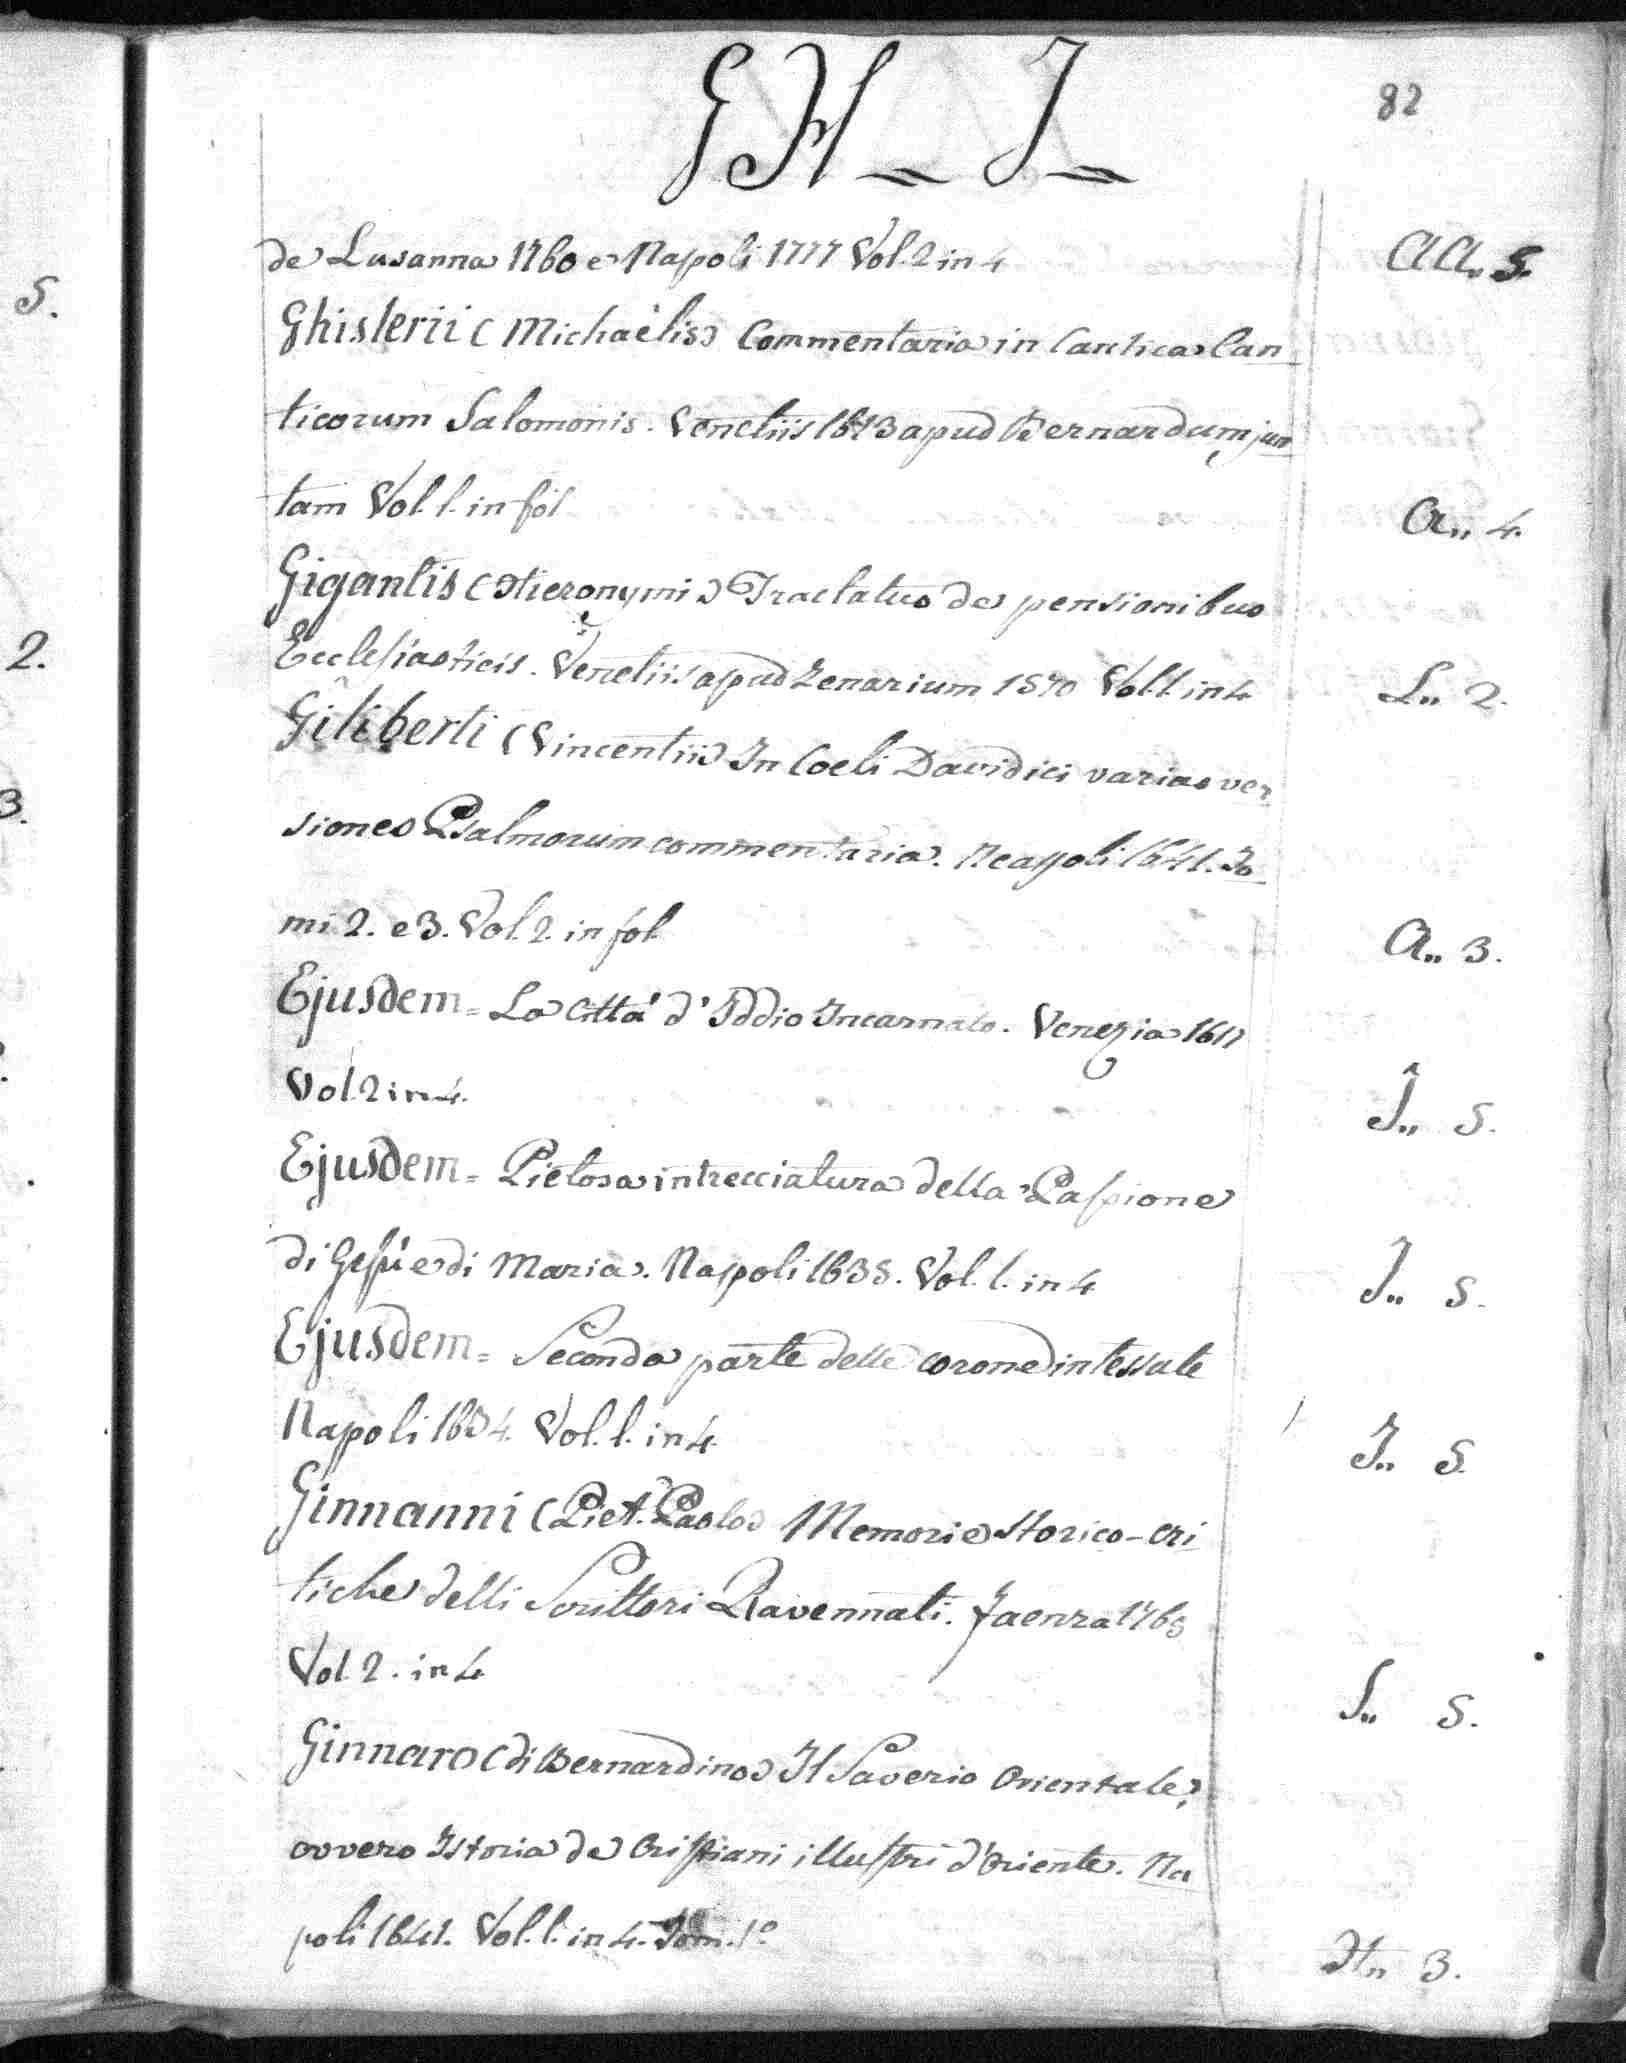 G H _ I _
82
de Lusanna 1760 e Napoli 1777 Vol. 2 in 4 AA. 5.
Ghislerii (Michaelis) Commentaria in Cantica Can
ticorum Salomonis. Venetiis 1613 apud Bernardum jun
tam Vol. 1. in fol A,, 4.
Gigantis (Hieronymi) Tractatus de pensionibus
Ecclesiasticis. Venetiis apud Zenarium 1570 Vol. 1. in 4 L,, 2.
Giliberti (Vincentii) In Coeli Davidici varias ver
siones Psalmorum commentaria. Neapoli 1641. To
mi 2. e 3. Vol. 2. in fol. A,, 3.
Ejusdem = La Cittá d' Iddio Incarnato. Venezia 1617
Vol. 2 in 4. I,, 5.
Ejusdem = Pietosa intrecciatura della Passione
di Gesú e di Maria. Napoli 1635. Vol. 1. in 4 I,, 5.
Ejusdem = Seconda parte delle corone intessute
Napoli 1634. Vol. 1. in 4. I,, 5.
Ginnanni (Piet. Paolo) Memorie storico-cri
tiche delli Scrittori Ravennati. Faenza 1765
Vol. 2. in 4 S,, 5.
Ginnaro (di Bernardino) Il Saverio Orientale,
ovvero Istoria de Cristiani illustri d'Oriente. Na
poli 1641. Vol. 1. in 4. Tom. 1.º H,, 3.
5.
2.
3.